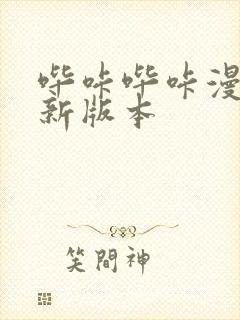 哔咔哔咔漫
新版本
笑閣神